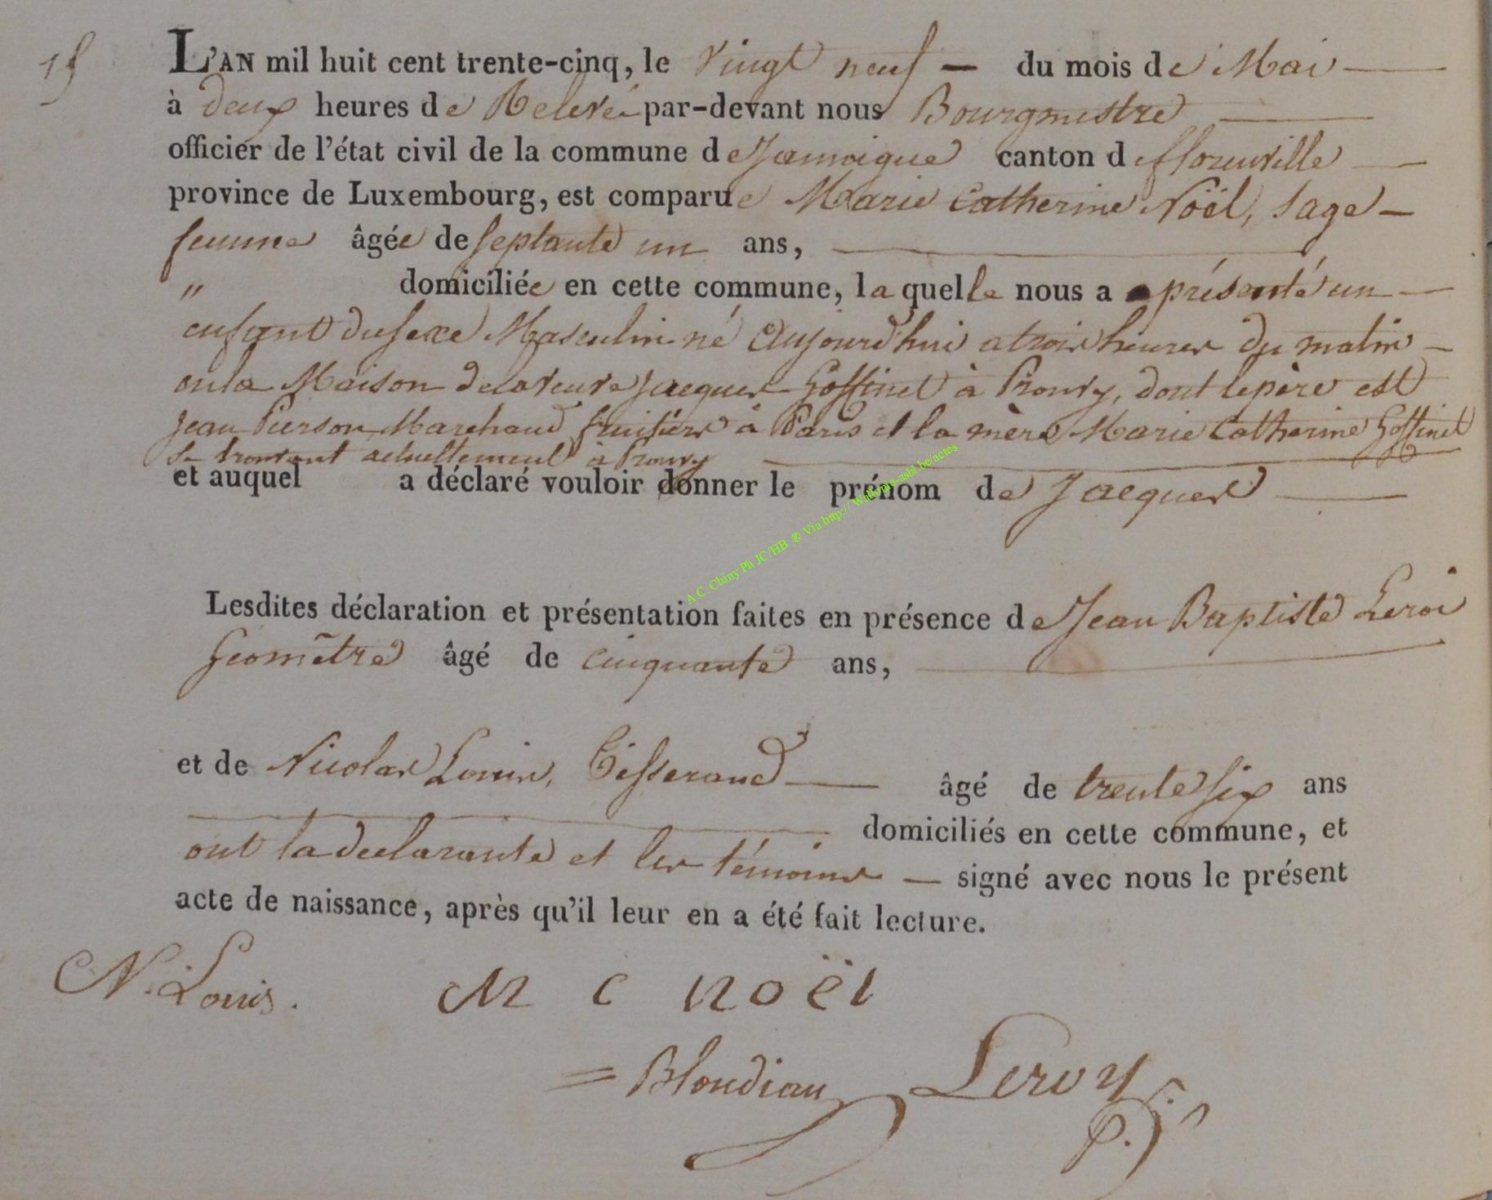 15
L'AN mil huit cent trente-cinq, le Vingt neuf — du mois de Mai —
à deux heures de Relevée par-devant nous Bourgmestre —
officier de l'état civil de la commune de Jamoigne canton de florenville —
province de Luxembourg, est comparue Marie Catherine Noël, Sage —
femme âgée de septante un ans, —
" domiciliée en cette commune, laquelle nous a présenté un —
enfant du sexe Masculin né Aujourd'hui a trois heures du matin —
en la Maison de la veuve Jacques Goffinet à Prouvy, dont le père est
Jean Pierson Marchand fruitier à Paris et la mère Marie Catherine Goffinet
se trouvant actuellement à Prouvy —
et auquel a déclaré vouloir donner le prénom de Jacques —
A.C. Chiny Ph JC/HB @ Via http://
Lesdites déclaration et présentation faites en présence de Jean Baptiste Leroi
Géomètre âgé de cinquante ans, —
et de Nicolas Louis, Tisserand — âgé de trente six ans
— domiciliés en cette commune, et
ont la declarante et les témoins — signé avec nous le présent
acte de naissance, après qu'il leur en a été fait lecture.
N. Louis. M C Noël
= Blondiau Leroy